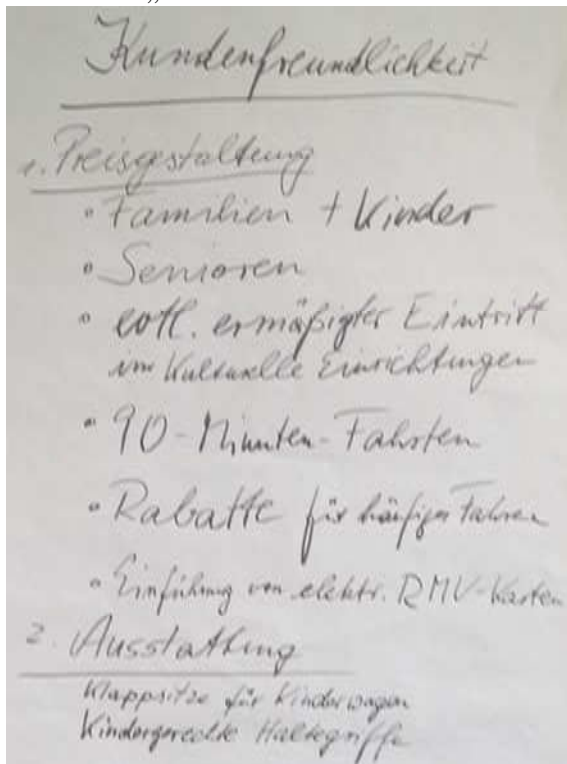 Kundenfreundlichkeit
1. Preisgestaltung
• Familien + Kinder
• Senioren
• evtl. ermäßigter Eintritt
in Kulturelle Einrichtungen
• 90-Minuten-Fahrten
• Rabatte für häufiges Fahren
• Einführung von elektr. RMV-Karten
2. Ausstattung
Klappsitze für Kinderwagen
Kindergerechte Haltegriffe